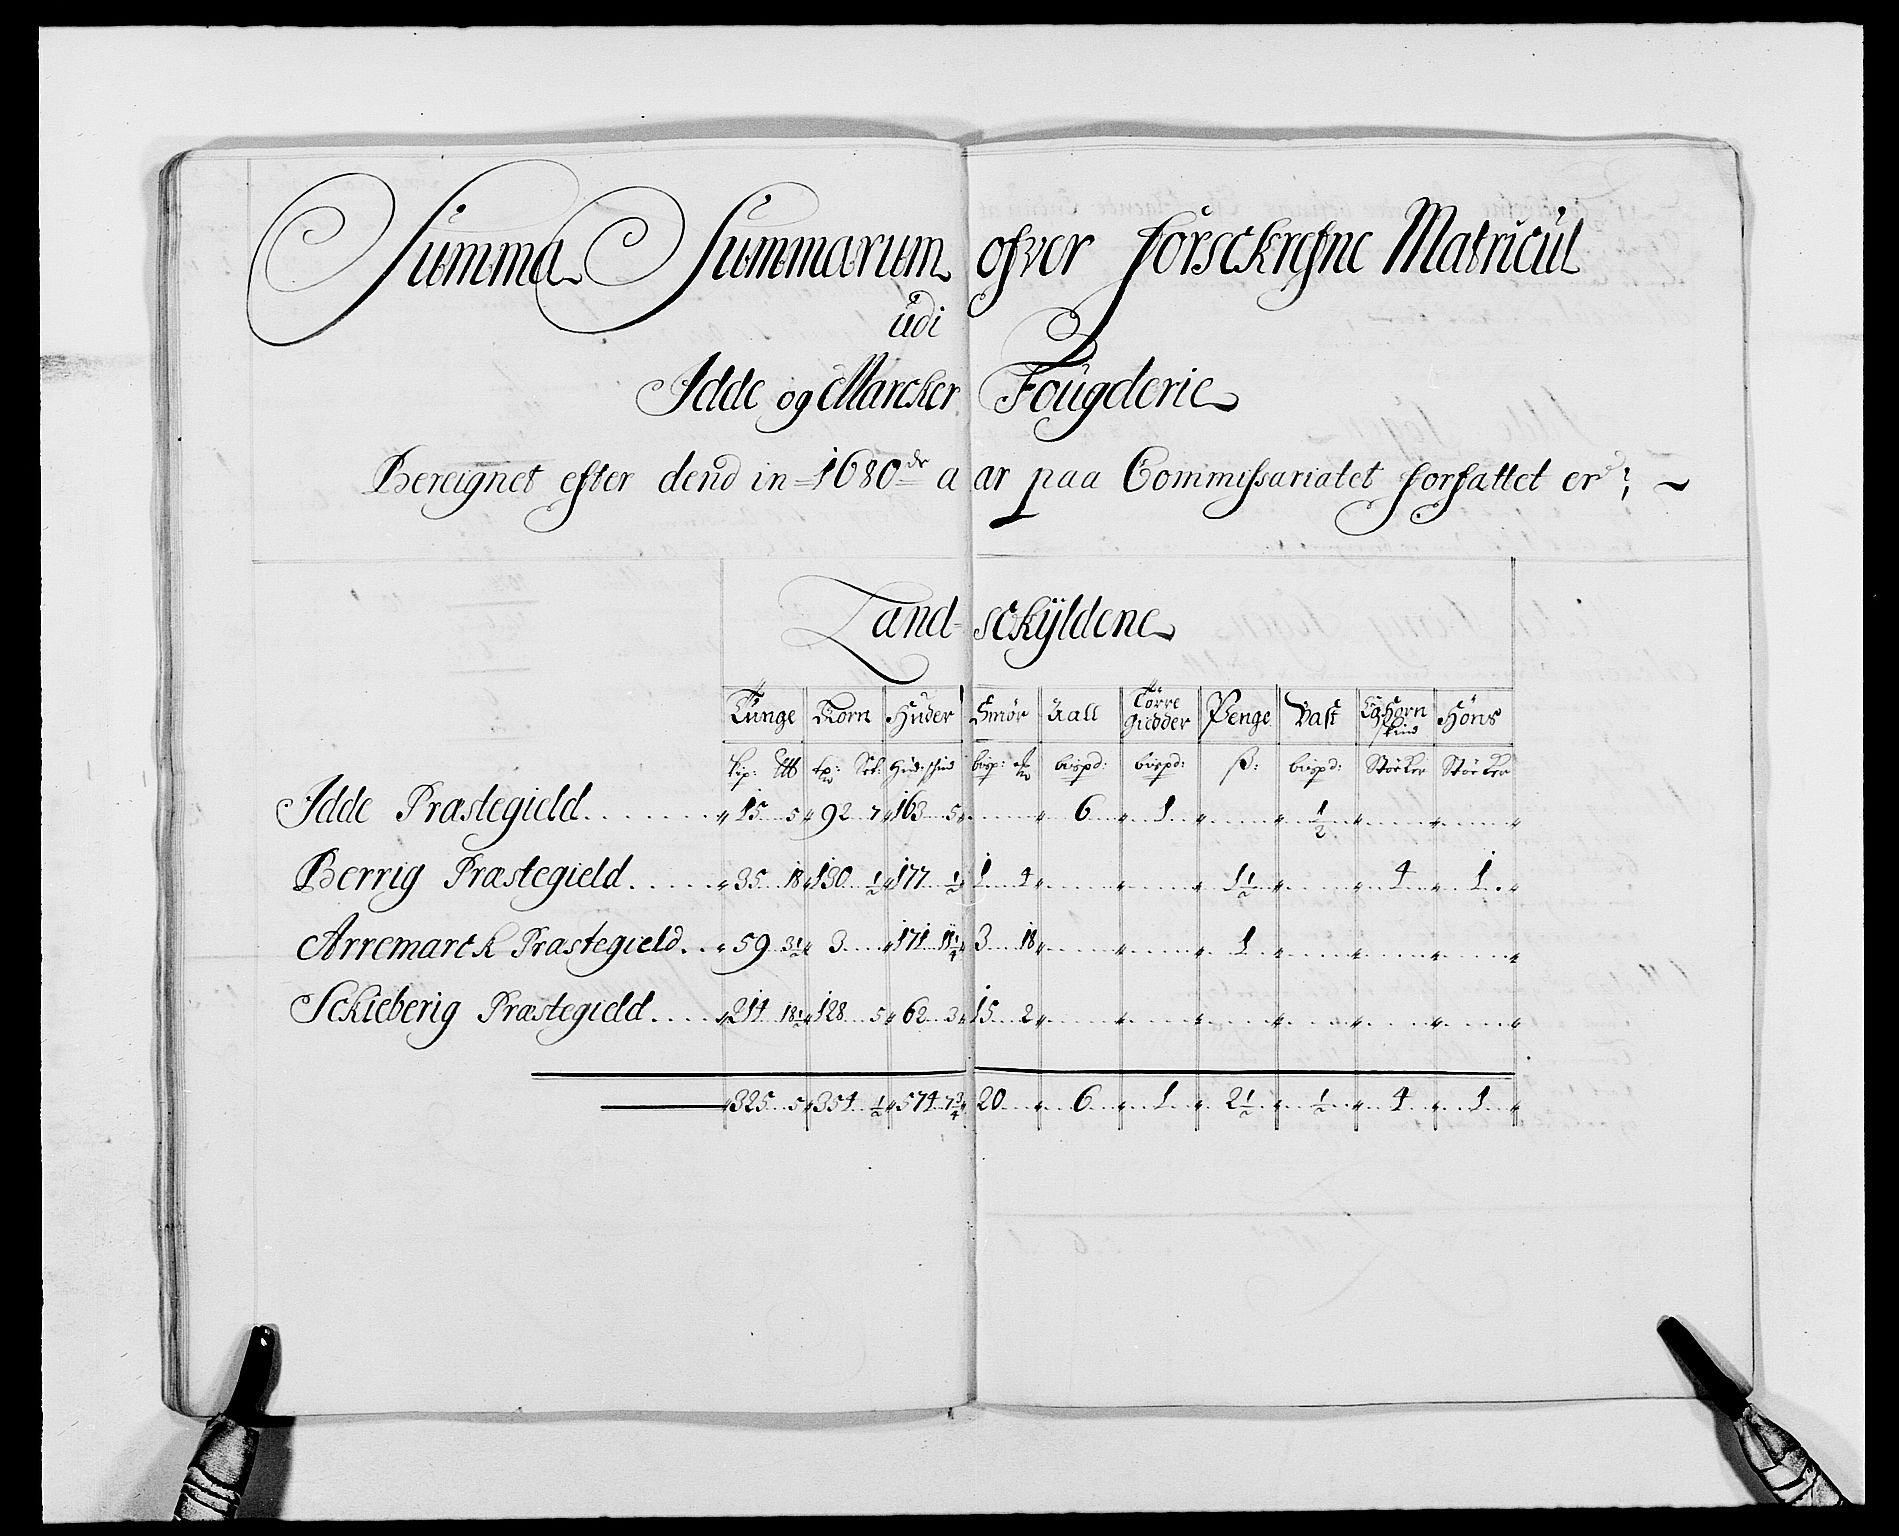 Summa Summarum ofver forsckrefne Matricul
udi
Idde og Marcker Fougderie
Bereignet efter dend in 1680de aar paa Commissariatet forfattet er;
Land-sckÿldene
Tunge Korn Huder Smör Aall Törre giedder Penge Vast Eghorn skind Höns
bispd: bispd: ß: bispd: Stöcker Stöcker
Idde Præstegield 15 5 92 7 163 5 6 1 1/2
Berrig Præstegield 35 18 130 1/2 177 1/2 1 4 1 1/2 4 1
Arremarck Præstegield 59 3 1/2 3 171 11 1/4 3 18 1
Sckieberig Præstegield 214 18 1/2 128 5 62 3 15 2
325 5 354 1/2 574 7 3/4 20 6 1 2 1/2 1/2 4 1